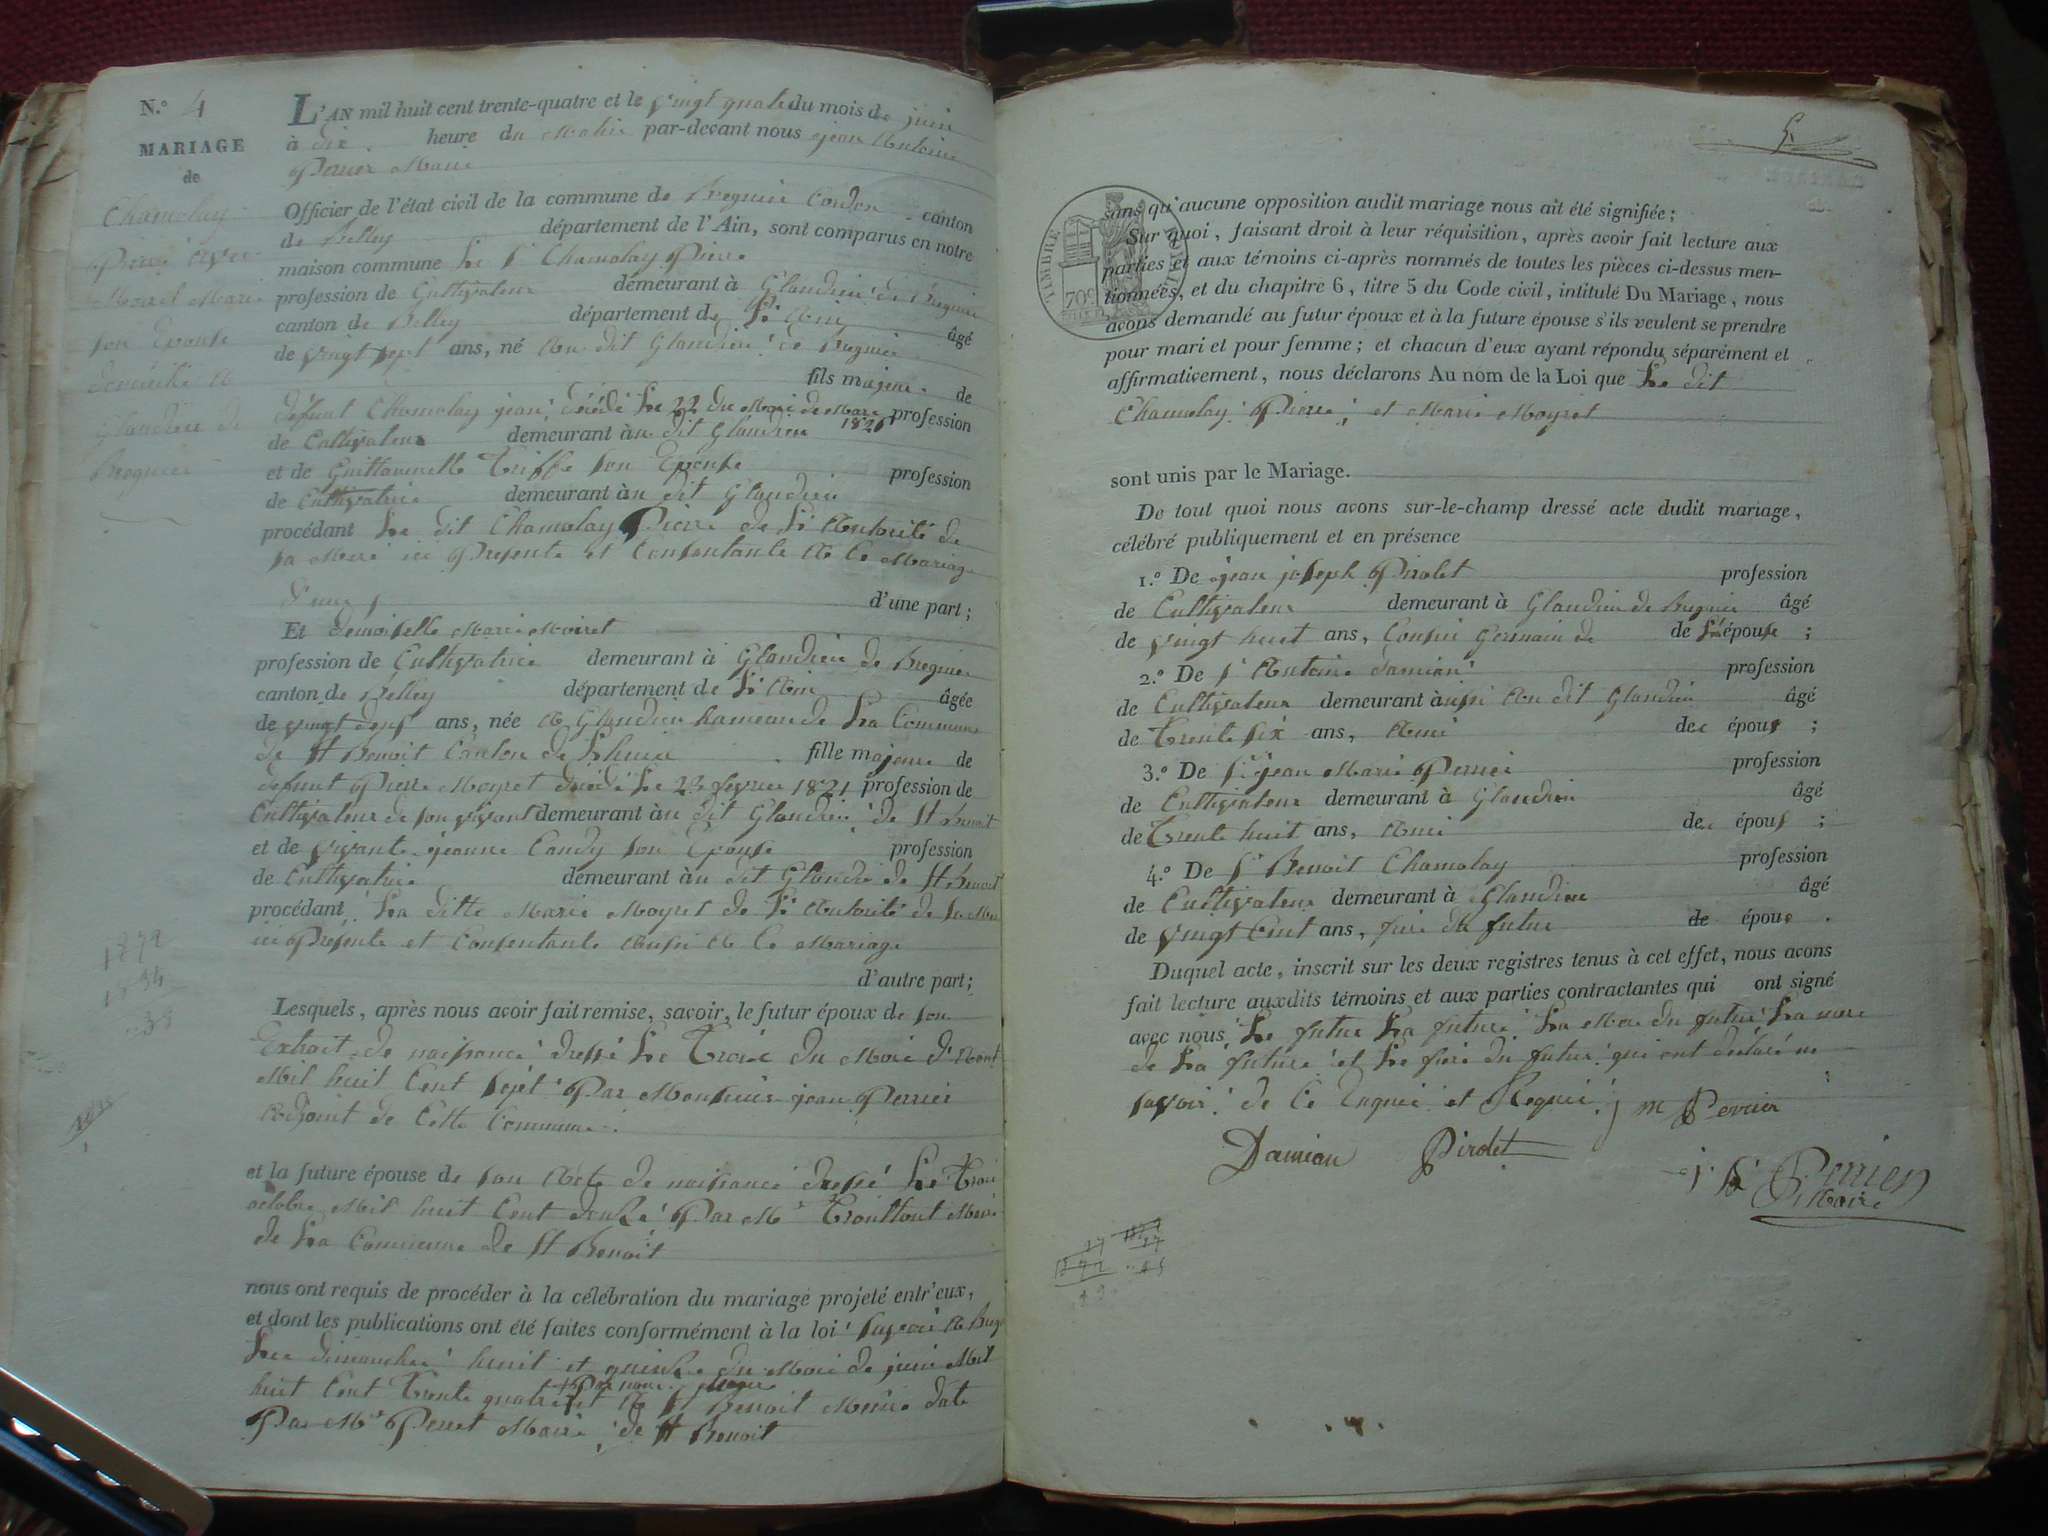 N.° 4
MARIAGE
de
Chamolay
Pierre avec
Moiret Marie
son Epouse
domicilié a
Glandieu de
Bregnier
L'AN mil huit cent trente-quatre et le vingt quatre du mois de juin
à dix heure du Matin par-devant nous jean Antoine
Perrier Maire
Officier de l'état civil de la commune de Bregnier Cordon canton
de Belley département de l'Ain, sont comparus en notre
maison commune Le S.r Chamolay Pierre
profession de Cultivateur demeurant à Glandieu de Bregnier
canton de Belley département de L'Ain âgé
de vingt sept ans, né Au dit Glandieu de Bregnier
fils majeur de
defunt Chamolay jean décédé Le 22 du Mois de Mars 1826 profession
de Cultivateur demeurant àu dit Glandieu
et de Guillaumette Triffe son Epouse profession
de Cultivatrice demeurant àu dit Glandieu
procédant Le dit Chamolay Pierre de L'Autorité de
sa Mere ici Presente et Consentante A Ce Mariage
d'une p d'une part;
Et demoiselle Marie Moiret
profession de Cultivatrice demeurant à Glandieu de Bregnier
canton de Belley département de L'Ain âgée
de vingt deux ans, née A Glandieu hameau de La Commune
de St Benoit Canton de Lhuis fille majeure de
defunt Pierre Moyret décédé Le 23 fevrier 1821 profession de
Cultivateur de son vivant demeurant àu dit Glandieu de St Benoit
et de vivante jeanne Candy son Epouse profession
de Cultivatrice demeurant àu dit Glandie de St Benoit
procédant La ditte Marie Moyret de L'Autorité de sa Mere
ici Presente et Consentante Aussi A Ce Mariage
d'autre part;
Lesquels, après nous avoir fait remise, savoir, le futur époux de son
Extrait de naissance dressé Le Trois du Mois d'Aout
Mil huit Cent sept Par Monsieur jean Perrier
Adjoint de Cette Commune
et la future épouse de son Acte de naissance dressé Le Trois
octobre Mil huit Cent douze Par Mr Trouillout Maire
de La Commune de St Benoit
nous ont requis de procéder à la célébration du mariage projeté entr'eux,
et dont les publications ont été faites conformément à la loi savoir A Breg
Les dimanches huit et quinze du Mois de juin Mil
huit Cent Trente quatre Par nous et A St Benoit Même date
Par Mr Perret Maire de St Benoit
1872
1834
38
5.
TIMBRE ROYAL
70c
sans qu'aucune opposition audit mariage nous ait été signifiée;
Sur quoi, faisant droit à leur réquisition, après avoir fait lecture aux
parties et aux témoins ci-après nommés de toutes les pièces ci-dessus men-
tionnées, et du chapitre 6, titre 5 du Code civil, intitulé Du Mariage, nous
avons demandé au futur époux et à la future épouse s'ils veulent se prendre
pour mari et pour femme; et chacun d'eux ayant répondu séparément et
affirmativement, nous déclarons Au nom de la Loi que Le dit
Chamolay Pierre et Marie Moyret
sont unis par le Mariage.
De tout quoi nous avons sur-le-champ dressé acte dudit mariage,
célébré publiquement et en présence
1.° De jean joseph Pirolet profession
de Cultivateur demeurant à Glandieu de Bregnier âgé
de vingt huit ans, Cousin Germain de de L'épouse;
2.° De S.r Antoine Damian profession
de Cultivateur demeurant àussi Au dit Glandieu âgé
de Trente six ans, Ami des époux;
3.° De S.r jean Marie Perrier profession
de Cultivateur demeurant à Glandieu âgé
de Trente huit ans, Ami des époux;
4.° De S.r Benoit Chamolay profession
de Cultivateur demeurant à Glandieu âgé
de vingt Cint ans, frere du futur de époux.
Duquel acte, inscrit sur les deux registres tenus à cet effet, nous avons
fait lecture auxdits témoins et aux parties contractantes qui ont signé
avec nous Le futur La future La Mere du futur La mere
de La future et Le frere du futur qui ont déclaré ne
savoir de Ce Enquis et Requis j m Perrier
Damian Pirolet j. A Perrier
Maire